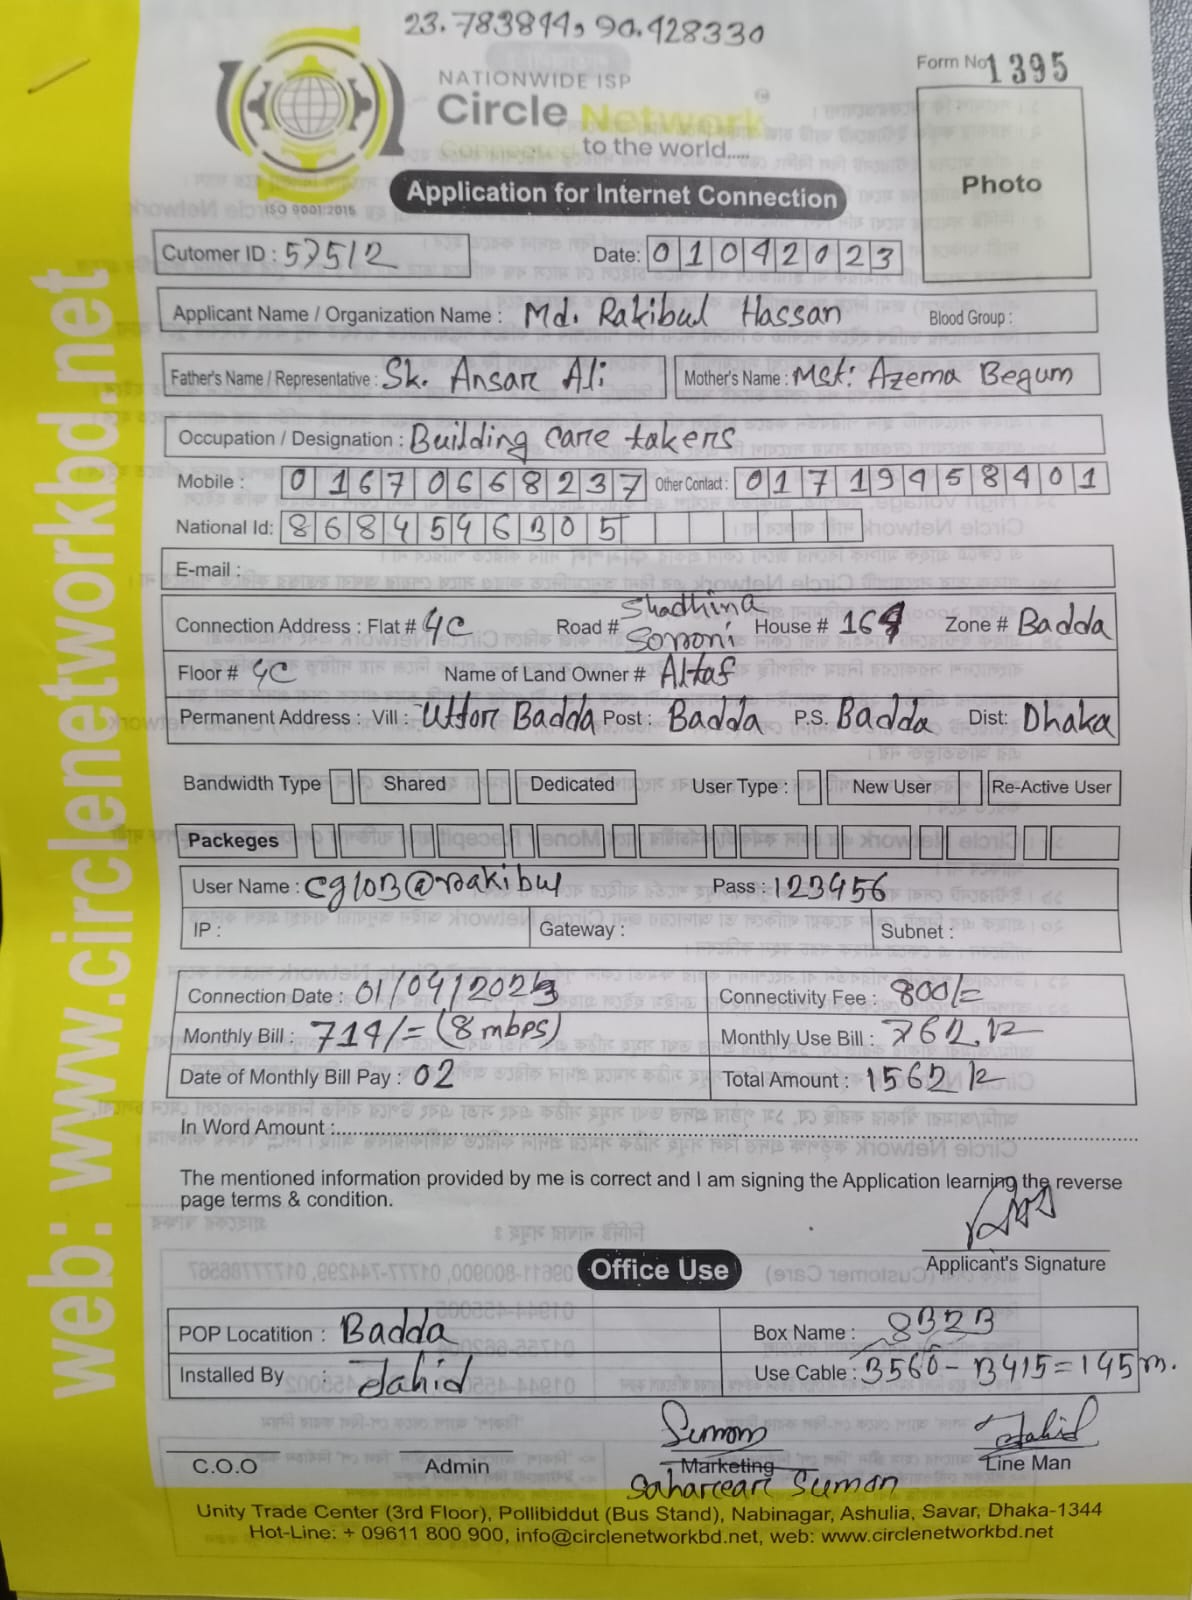 23.783844, 90.428330
Form No 1395
NATIONWIDE ISP
Circle Network
Connected to the world.....
ISO 9001:2015
Application for Internet Connection
Photo
Cutomer ID : 57512
Date: 01042023
Applicant Name / Organization Name : Md. Rakibul Hassan Blood Group :
Father's Name / Representative : Sk. Ansar Ali Mother's Name : Mst: Azema Begum
Occupation / Designation : Building care takers
Mobile : 01670668237 Other Contact : 01719458401
National Id: 8684546305
E-mail :
Connection Address : Flat # 4C Road # Shadhina Soroni House # 164 Zone # Badda
Floor # 4C Name of Land Owner # Altaf
Permanent Address : Vill : Uttor Badda Post : Badda P.S. Badda Dist: Dhaka
Bandwidth Type Shared Dedicated User Type : New User Re-Active User
Packeges
User Name : cglo3@rakibul Pass : 123456
IP : Gateway : Subnet :
Connection Date : 01/04/2023 Connectivity Fee : 800/=
Monthly Bill : 714/= (8 mbps) Monthly Use Bill : 762
Date of Monthly Bill Pay : 02 Total Amount : 1562
In Word Amount :
The mentioned information provided by me is correct and I am signing the Application learning the reverse
page terms & condition.
Applicant's Signature
Office Use
POP Locatition : Badda Box Name : 8323
Installed By : Jahid Use Cable : 3560 - 3415 = 145 m.
Sumon Jahid
C.O.O Admin Marketing Line Man
Sumon
Unity Trade Center (3rd Floor), Pollibiddut (Bus Stand), Nabinagar, Ashulia, Savar, Dhaka-1344
Hot-Line: + 09611 800 900, info@circlenetworkbd.net, web: www.circlenetworkbd.net
web: www.circlenetworkbd.net